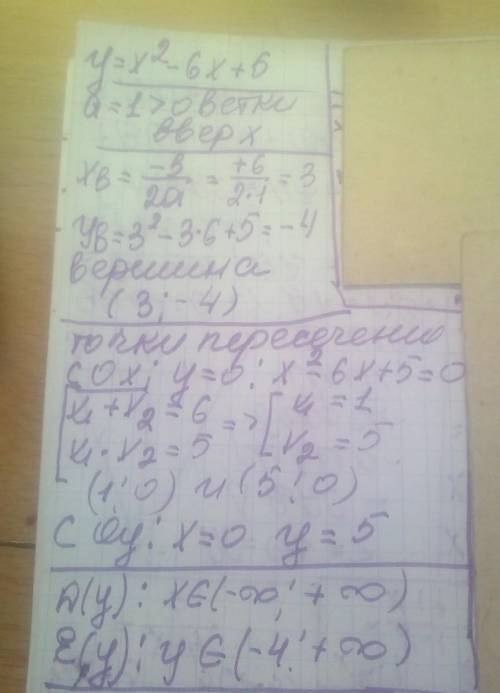 y=x²-6x+5
a=1>0 ветки
вверх
xв = -в/2a = +6/2·1 = 3
yв=3²-3·6+5=-4
вершина
(3;-4)
точки пересечения
с Ox: y=0: x²-6x+5=0
[x₁+x₂=6 => [x₁=1
[x₁·x₂=5 [x₂=5
(1;0) и (5;0)
с Oy: x=0 y=5
D(y): x∈(-∞;+∞)
E(y): y∈(-4;+∞)